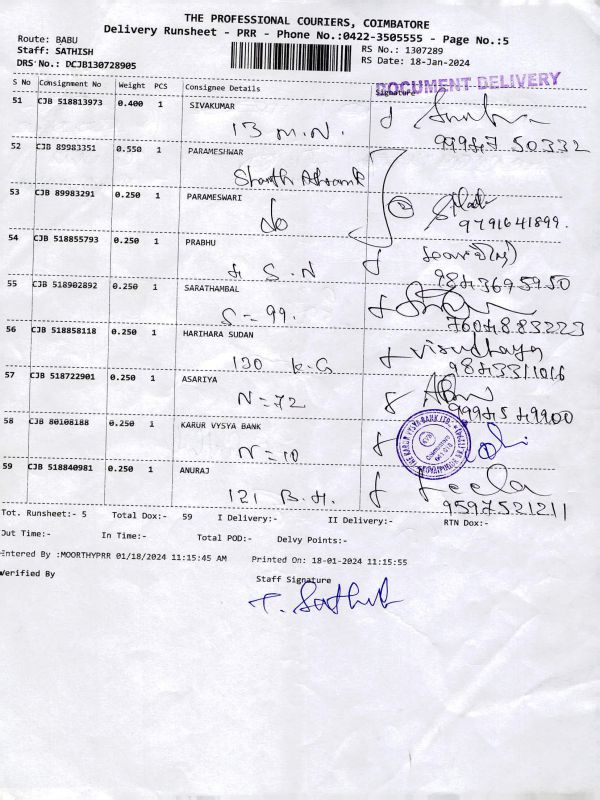 THE PROFESSIONAL COURIERS, COIMBATORE
Delivery Runsheet - PRR - Phone No.:0422-3505555 - Page No.:5
Route: BABU
Staff: SATHISH
DRS No.: DCJB130728905
RS No.: 1307289
RS Date: 18-Jan-2024
DOCUMENT DELIVERY
S No Consignment No Weight PCS Consignee Details Signature
51 CJB 518813973 0.400 1 SIVAKUMAR
13 M.N. 99947 50332
52 CJB 89983351 0.550 1 PARAMESHWAR
53 CJB 89983291 0.250 1 PARAMESWARI
Do 2 9791641899.
54 CJB 518855793 0.250 1 PRABHU
4 S.N 9843695950
55 CJB 518902892 0.250 1 SARATHAMBAL
S=99. 7604883223
56 CJB 518858118 0.250 1 HARIHARA SUDAN
130 K.G visudhaya
9843311016
57 CJB 518722901 0.250 1 ASARIYA
N=72 99945 49900
58 CJB 80108188 0.250 1 KARUR VYSYA BANK
N=10
THE KARUR VYSYA BANK LTD.
59 CJB 518840981 0.250 1 ANURAJ
121 B.H. Leela
9597521211
Tot. Runsheet:- 5 Total Dox:- 59 I Delivery:- II Delivery:- RTN Dox:-
Out Time:- In Time:- Total POD:- Delvy Points:-
Entered By :MOORTHYPRR 01/18/2024 11:15:45 AM Printed On: 18-01-2024 11:15:55
Verified By Staff Signature
T. Sathish